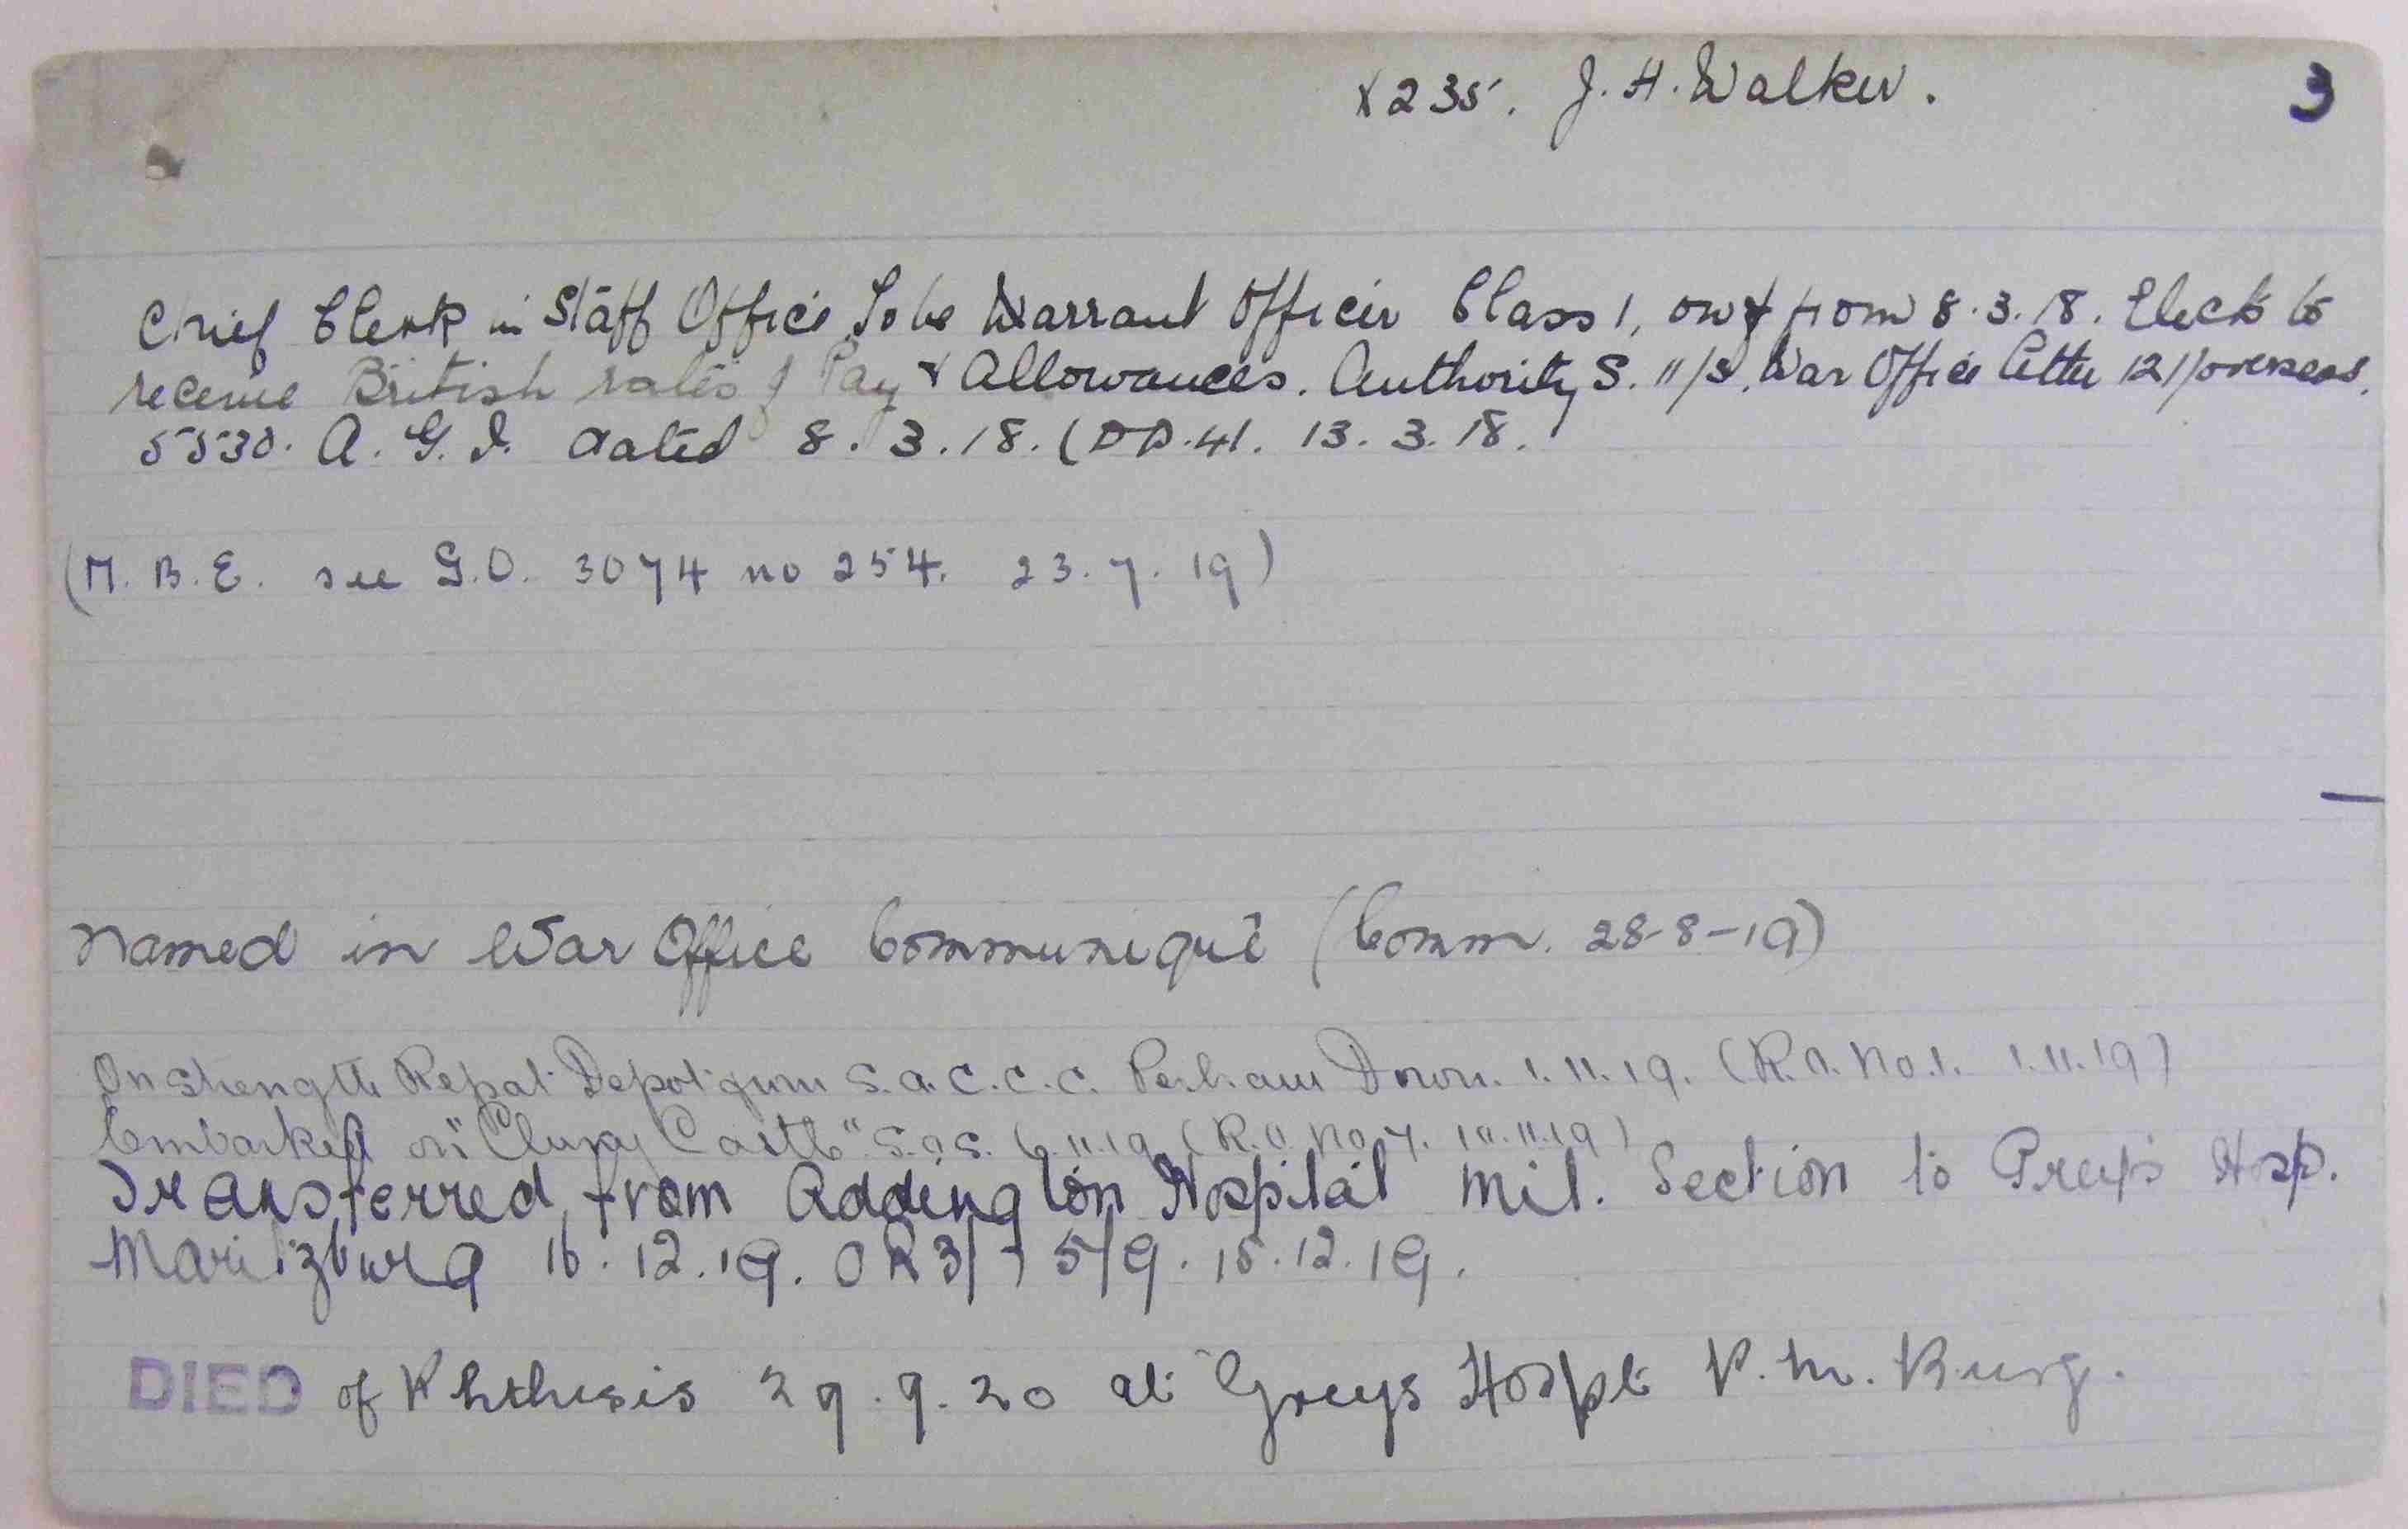 X235. J. H. Walker. 3
Chief Clerk in Staff Office. To be Warrant Officer Class 1, on & from 8.3.18. Elects to
receive British rates of Pay & Allowances. Authority S. 11/5. War Office letter 121/overseas.
5530. A.G.I. dated 8.3.18. (DD.41. 13.3.18.
(M.B.E. see G.O. 3074 no 254. 23.7.19)
Named in War Office Communiqué (Comm. 28-8-19)
On strength Repat Depot from S.A.C.C.C. Perham Down. 1.11.19. (R.O. No.1. 1.11.19)
Embarked on "Cluny Castle" S.O.S. 6.11.19 (R.O. No 7. 10.11.19)
Transferred from Addington Hospital Mil. Section to Greys Hosp.
Maritzburg 16.12.19. OR3/ 5/9. 15.12.19.
DIED of Phthisis 29.9.20 at Greys Hospt P.M. Burg.